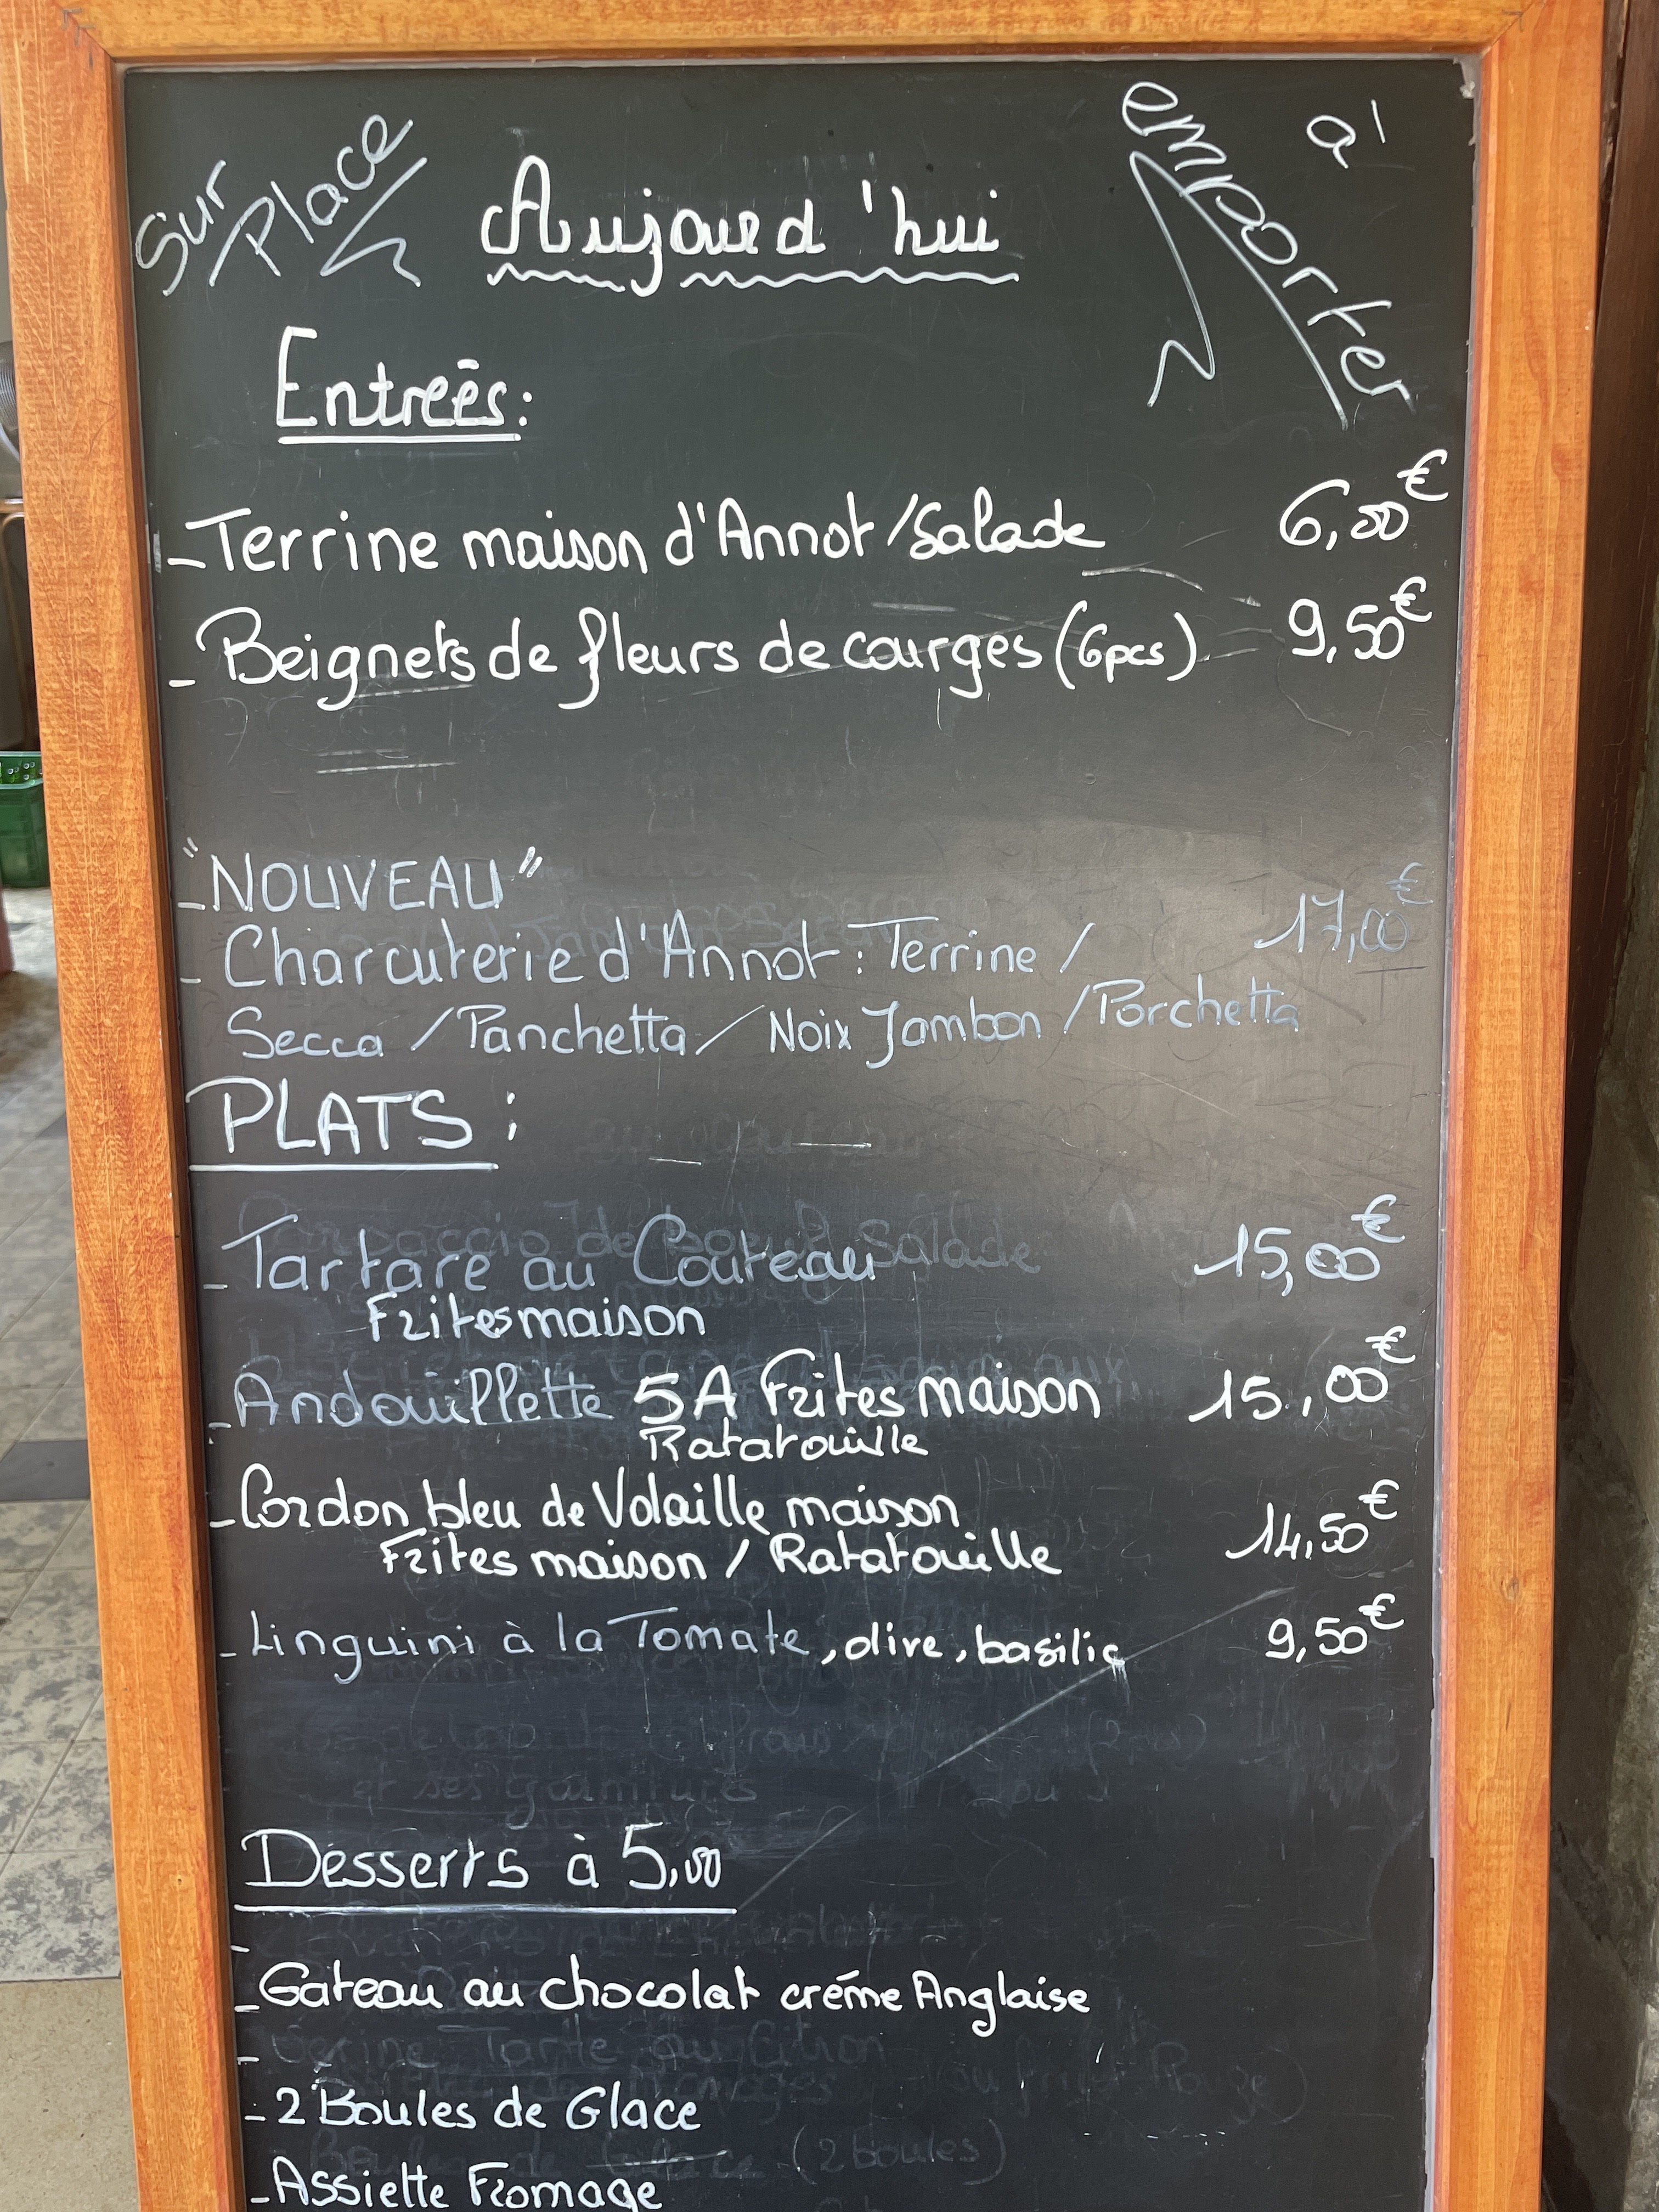 Sur Place
à emporter
Aujourd'hui
Entreés:
-Terrine maison d'Annot/Salade 6,00€
-Beignets de fleurs de courges (6pcs) 9,50€
-"NOUVEAU"
-Charcuterie d'Annot: Terrine / 17,00€
Secca / Panchetta / Noix Jambon / Porchetta
PLATS:
-Tartare au Couteau 15,00€
Frites maison
-Andouillette 5A Frites maison 15,00€
Ratatouille
-Cordon bleu de Volaille maison
Frites maison / Ratatouille 14,50€
-Linguini à la Tomate, olive, basilic 9,50€
Desserts à 5,00
-
-Gateau au chocolat créme Anglaise
-
-2 Boules de Glace
-Assiette Fromage